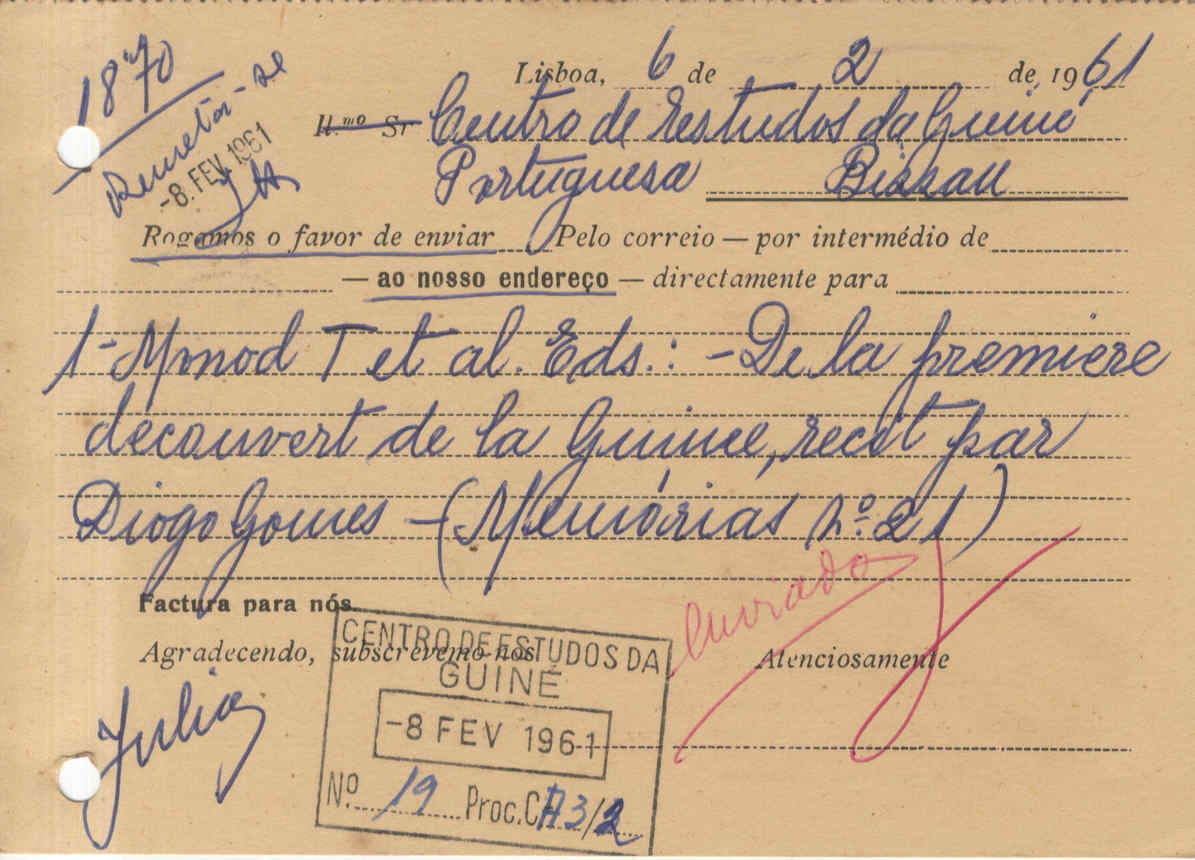 1870
Remeter-se
-8. FEV 1961
Lisboa, 6 de 2 de 1961
Il.mo Sr Centro de Estudos da Guiné
Portuguesa Bissau
Rogamos o favor de enviar Pelo correio — por intermédio de
— ao nosso endereço — directamente para
1- Monod T et al. Eds.: - De la première
découvert de la Guinee, recét par
Diogo Gomes - (Memórias nº 21)
Factura para nós
Agradecendo, subscrevemo-nos Atenciosamente
enviado
Julia
CENTRO DE ESTUDOS DA
GUINÉ
-8 FEV 1961
Nº 19 Proc. CA3/2